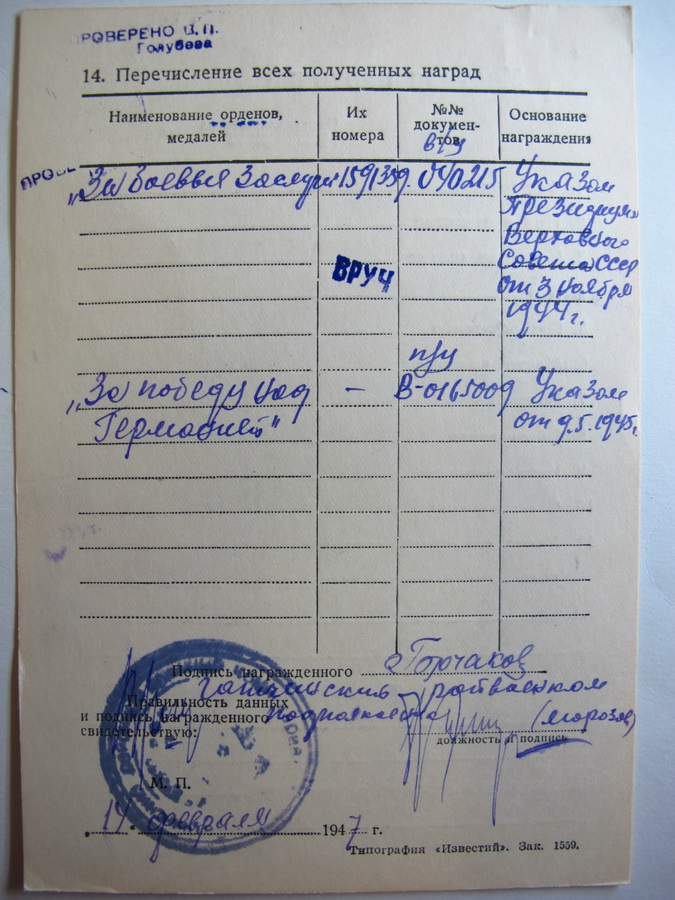 ПРОВЕРЕНО В. П.
Голубева
14. Перечисление всех полученных наград
Наименование орденов, медалей
Их номера
№№ документов
Основание награждения
в/у
„За боевые заслуги" 1591359. 040215 Указом
Президиума
Верховного
Совета СССР
от 3 ноября
1944 г.
ВРУЧ
п/у
„За победу над – В-0165009 Указом
Германией" от 9.5.1945г.
Подпись награжденного Горчаков
Правильность данных
и подпись награжденного
свидетельствую:
Гатчинский райвоенком
подполковник
(Морозов)
должность и подпись
М. П.
14 февраля 1947 г.
Типография «Известий». Зак. 1559.